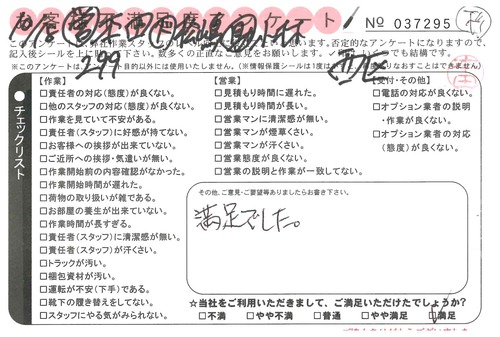 お客様満足度アンケート
No 037295
記入後シールを上に貼って下さい。数多くの正直なご意見が聞きたい
※このアンケートは
目的以外には使用いたしません。(※情報保護シールは1度
299
チェックリスト
【作業】
□責任者の対応(態度)が良くない。
□他のスタッフの対応(態度)が良くない。
□作業を見ていて不安がある。
□責任者(スタッフ)に好感が持てない。
□お客様への挨拶が出来ていない。
□ご近所への挨拶・気遣いが無い。
□作業開始前の内容確認がなかった。
□作業開始時間が遅れた。
□荷物の取り扱いが雑である。
□お部屋の養生が出来ていない。
□作業時間が長すぎる。
□責任者(スタッフ)に清潔感が無い。
□責任者(スタッフ)が汗くさい。
□トラックが汚い。
□梱包資材が汚い。
□運転が不安(下手)である。
□靴下の履き替えをしてない。
□スタッフにやる気がみられない。
【営業】
□見積もり時間に遅れた。
□見積もり時間が長い。
□営業マンに清潔感が無い。
□営業マンが煙草くさい。
□営業マンが汗くさい。
□営業態度が良くない。
□営業の説明と作業が一致してない。
【受付・その他】
□電話の対応が良くない。
□オプション業者の説明
・作業が良くない。
□オプション業者の対応
(態度)が良くない。
その他、ご意見・ご要望等ありましたらお書き下さい。
満足でした。
☆当社をご利用いただきまして、ご満足いただけたでしょうか?
□不満 □やや不満 □普通 □やや満足 □満足